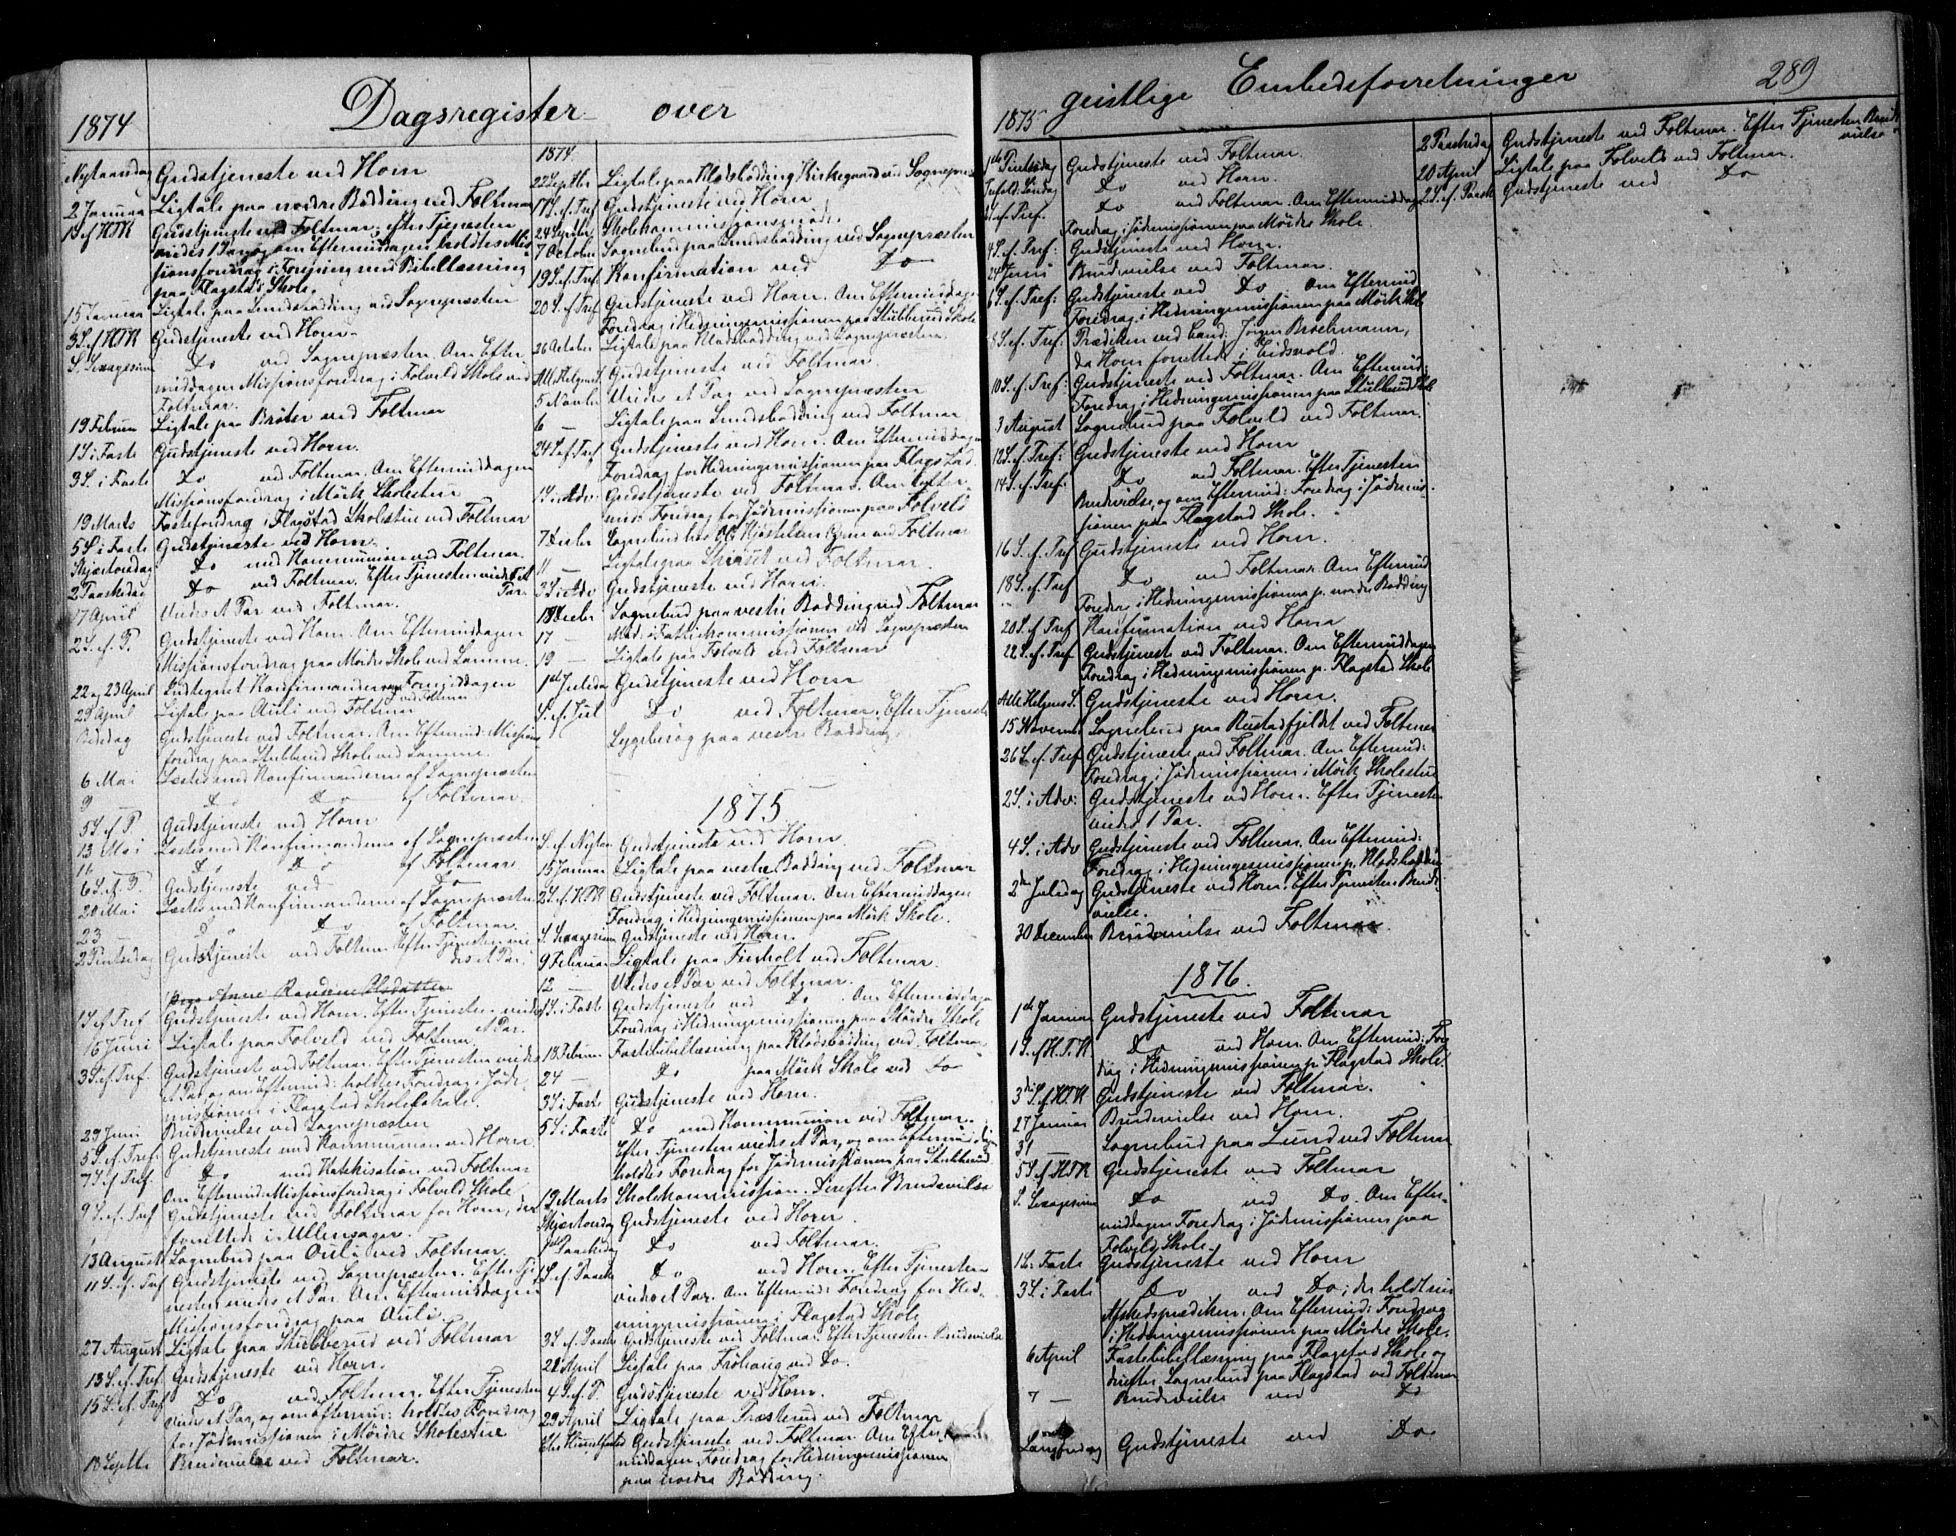 Dagsregister over
1874
Nytaarsdag Gudstjeneste ved Horn
2 Januar Ligtale paa nordre Bødding ved Foltmar
1 S. ef. H3K Gudstjeneste ved Foltmar, efter Tjenesten
viedes 1 Par, og om Eftermiddagen holdtes Mis-
sionsforedrag i Forening med Bibellæsning
paa Flagstad Skole.
15 Januar Ligtale paa Sundsbødding ved Sognepræsten
3 S. ef H3K Gudstjeneste ved Horn
S. Sexagesima Do ved Sognepræsten. Om Efter-
middagen Missionsforedrag i Folveld Skole ved
Foltmar.
19 Februar Ligtale paa Bröter ved Foltmar
1 S i Faste Gudstjeneste ved Horn.
3 S. i Faste Do ved Foltmar. Om Eftermiddagen
Missionsforedrag i Mörk Skolestue
19 Marts Fasteforedrag i Flagstad Skolestue ved Foltmar
5 S i Faste Gudstjeneste ved Horn.
Skjærtorsdag Do med Kommunion ved Foltmar.
2 Paaskedag Do ved Foltmar. Efter Tjenesten viedes et
Par.
17 April Viedes et Par ved Foltmar.
2 S. ef. P. Gudstjeneste ved Horn. Om Eftermiddagen
Missionsforedrag paa Mördre Skole ved Samme.
22 og 23 April Indtegnet Konfirmander om Formiddagen
ved Foltmar
29 April Ligtale paa Auli ved Foltmar
Bededag Gudstjeneste ved Foltmar. Om Eftermid: Missions
foredrag paa Stubberud Skole ved Samme.
6 Mai Læstes med Konfirmanderne af Sognepræsten
9 — Do Do af Foltmar.
5 S. ef P. Gudstjeneste ved Horn
13 Mai Læstes med Konfirmanderne af Sognepræsten
Do Do af Foltmar
6 S. ef. P. Gudstjeneste ved Do
20 Mai Læstes med Konfirmanderne af Sognepræsten
23 — Do Do af Foltmar.
2 Pintsedag Gudstjeneste ved Foltmar. Efter Tjenesten vie-
des et Par.
Anne Randine Olsdatter
1 S. ef Tref Gudstjeneste ved Horn. Efter Tjenesten viedes
et Par.
16 Juni Ligtale paa Folveld ved Foltmar
3 S. ef Tref. Gudstjeneste ved Foltmar. Efter Tjenesten viedes
et Par, og om Eftermid: holdtes Foredrag i Jöde-
missionen i Flagstad Skolelokale.
29 Juni Brudevielse ved Sognepræsten
5 S. ef. Tref. Gudstjeneste med Kommunion ved Horn.
7 S. ef Tref. Do med Katekisation ved Foltmar
Om Eftermid: Missionsforedrag i Folveld Skole
9 S. ef. Tref Gudstjeneste ved Foltmar for Horn, der
forrettede i Ullensager.
13 August Sognebud paa Auli ved Foltmar.
11 S. ef. Tref Gudstjeneste ved Sognepræsten. Efter Tje-
nesten viedes et Par. Om Eftermiddagen
Missionsforedrag paa Auli.
27 August Ligtale paa Stubberud ved Foltmar
13 S. ef Tref Gudstjeneste ved Horn.
15 S. ef. Tref Do ved Foltmar. Efter Tjenesten
viedes et Par, og om Eftermid: holdtes Foredrag
for Jödemissionen i Mördre Skolestue
18 Septbr Brudevielse ved Foltmar.
1874.
22 Septbr Ligtale paa Klodsbødding Kirkegaard ved Sognepræst
17 S. ef. Tref Gudstjeneste ved Horn
24 Septbr Skolekommissionsmöde.
7 October Sognebud paa Sundsbødding ved Sognepræsten
19 S. ef Tref Konfirmation ved Do
20 S. ef Tref Gudstjeneste ved Horn. Om Eftermiddagen
Foredrag i Hedningemissionen paa Stubberud Skole
26 October Ligtale paa Klodsbødding ved Sognepræsten
Alle Helgens S. Gudstjeneste ved Foltmar.
5 Novbr Viedes et Par ved Sognepræsten
6 — Ligtale paa Sundsbødding ved Foltmar
24 S. ef Tref Gudstjeneste ved Horn. Om Eftermiddagen
Foredrag for Hedningemissionen paa Flagstad
1 S. i Adv: Gudstjeneste ved Foltmar. Om Efter-
mid: Foredrag for Jödemissionen paa Folveld
7 Decbr Sognebud hos ved Foltmar
11 — Ligtale paa ved Foltmar.
3 S i Adv Gudstjeneste ved Horn.
13 Decbr Sognebud paa vestre Bødding ved Foltmar
17 — Möde i Fattigkommissionen ved Sognepræsten
19 — Ligtale paa Folveld ved Foltmar
1ste Juledag Gudstjeneste ved Horn
S. ef. Jul Do ved Foltmar. Efter Tjeneste
Sygebesøg paa vestre Bødding.
1875
S. ef. Nytaar Gudstjeneste ved Horn.
15 Januar Ligtale paa vestre Bødding ved Foltmar
2 S. ef. H3K Gudstjeneste ved Foltmar. Om Eftermiddagen
Foredrag i Hedningemissionen paa Mörk Skole.
S. Sexagesima Gudstjeneste ved Horn.
9 Februar Ligtale paa Finholt ved Foltmar.
12 — Viedes et Par ved Foltmar.
1 S. i Faste Gudstjeneste ved Do. Om Eftermiddagen
Foredrag i Hedningemissionen paa Mördre Skole
18 Februar Fastebibellæsning paa Klodsbødding ved Foltmar
24 — Do paa Mörk Skole ved Do
3 S i Faste Gudstjeneste ved Horn.
5 S i Faste Do med Kommunion ved Foltmar.
Efter Tjenesten viedes et Par, og om Eftermiddagen
holdtes Foredrag for Jödemissionen paa Stubberud
19 Marts Skolekommission. Derefter Brudevielse
Skjærtorsdag Gudstjeneste ved Horn.
1ste Paaskedag Do ved Foltmar.
1 S. ef. Paaske Do ved Horn. Efter Tjenesten
viedes et Par. Om Eftermid: Foredrag for Hed-
ningemissionen i Flagstad Skole
3 S. ef. Paaske Gudstjeneste ved Foltmar. Efter Tjenesten Brudevielse
22 April Ligtale paa Fröhaug ved Do.
4 S. ef. P. Gudstjeneste ved Horn.
29 April Ligtale paa Præsterud ved Foltmar
Chr Himmelfartsd Gudstjeneste ved Foltmar. Om Efter-
middagen Foredrag for Hedningemissionen
paa nordre Bødding.
geistlige Embedsforretninger
289
1875
1ste Pintsedag Gudstjeneste ved Foltmar.
Trefold. Söndag Do ved Horn.
ef. Tref. Do ved Foltmar. Om Eftermiddag
Foredrag i Jödemissionen paa Mördre Skole.
4 S. ef. Tref: Gudstjeneste ved Horn.
24 Juni Brudevielse ved Foltmar.
6 S. ef. Tref: Gudstjeneste ved Do Om Eftermid
Foredrag i Hedningemissionen paa Mörk Skole
8 S. ef. Tref: Prædiken ved Cand: Jörgen Brochmann,
da Horn forrettede i Eidsvold.
10 S. ef. Tref: Gudstjeneste ved Foltmar. Om Eftermid:
Foredrag i Hedningemissionen paa Stubberud Skole
3 August Sognebud paa Folveld ved Foltmar.
12 S. ef. Tref: Gudstjeneste ved Horn
14 S. ef. Tref: Do ved Foltmar. Efter Tjenesten
Brudevielse, og om Eftermid: Foredrag i Jödemis-
sionen paa Flagstad Skole.
16 S. ef. Tref Gudstjeneste ved Horn.
18 S. ef. Tref Do ved Foltmar. Om Eftermid
Foredrag i Hedningemissionen p. nordre Bødding
20 S. ef Tref Konfirmation ved Horn
22 S. ef. Tref Gudstjeneste ved Foltmar. Om Eftermiddagen
Foredrag i Hedningemissionen p. Flagstad Skole
Alle Helgens S. Gudstjeneste ved Horn.
15 Novemb. Sognebud paa Rustadfjeldet ved Foltmar
26 S. ef. Tref Gudstjeneste ved Foltmar. Om Eftermid:
Foredrag i Jödemissionen i Mörk Skolestue
2 S. i Adv: Gudstjeneste ved Horn. Efter Tjenesten
viedes 1 Par.
4 S. i Adv Gudstjeneste ved Foltmar. Om Eftermid:
Foredrag i Hedningemissionen p. Klodsbødding
2den Juledag Gudstjeneste ved Horn. Efter Tjenesten Brude-
vielse.
30 December Brudevielse ved Foltmar.
1876.
1ste Januar Gudstjeneste ved Foltmar
1 S. ef H.3.K Do ved Horn. Om Eftermid: Fore-
drag i Hedningemissionen p. Flagstad Skole.
3die S. ef H3K Gudstjeneste ved Foltmar.
27 Januar Brudevielse ved Horn.
31 — Sognebud paa Lund ved Foltmar
5 S. ef. H3K Gudstjeneste ved Foltmar
S. Sexagesima Do ved Do. Om Efter-
middagen Foredrag i Jödemissionen paa
Folveld Skole.
1 S. i Faste Gudstjeneste ved Horn
3 S. i Faste Do ved Do; der holdt sin
Afskedsprædiken. Om Eftermid: Foredrag
i Hedningemissionen paa Mördre Skole.
6 April Fastebibellæsning paa Flagstad Skole og
derefter Sognebud paa Flagstad ved Foltmar
7 — Brudevielse ved Do
Langfredag Gudstjeneste ved Do
2 Paaskedag Gudstjeneste ved Foltmar. Efter Tjenesten Brude-
vielse
20 April Ligtale paa Folveld ved Foltmar.
2 S. ef. Paaske Gudstjeneste ved Do